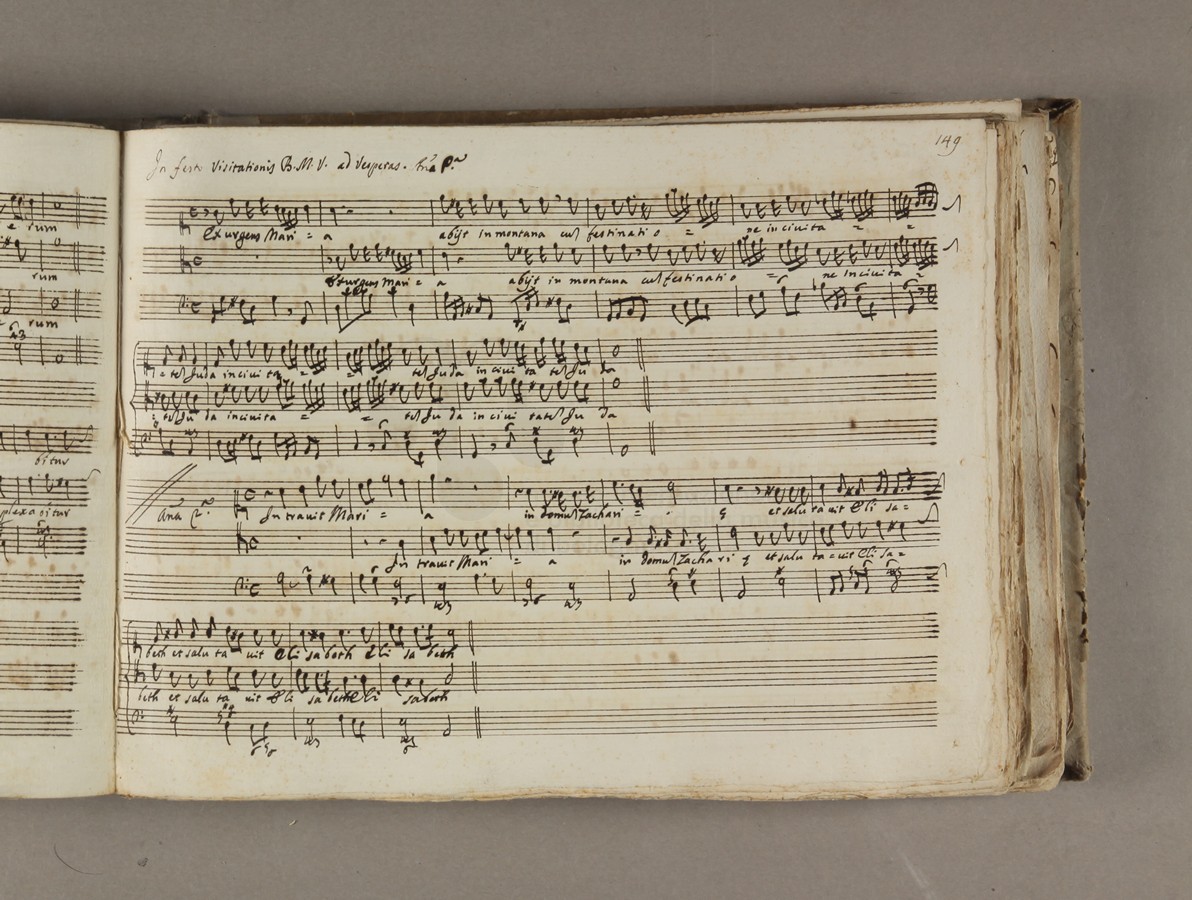 149
In festo Visitationis B.M.V. ad Vesperas. Ana P.a
e rum
Exurgens Mari = a abijt in montana cu festinatio = ne in civita = =
rum
Exurgens Mari = a abijt in montana cu festinatio = ne in civita =
rum
43
= te Juda in civi ta = = te Juda in civi ta te Ju da
te Ju da in civita = = te Ju da in civi ta te Ju da
bitur
plexabitur
Ana 2.a In travit Mari = a in domu Zachari = = et salu ta vit Eli sa =
In travit Mari = a in domu Zachari et salu ta = vit Eli sa =
beth et salu ta vit Eli sa beth Eli sa beth
beth et salu ta vit Eli sa beth Eli sa beth